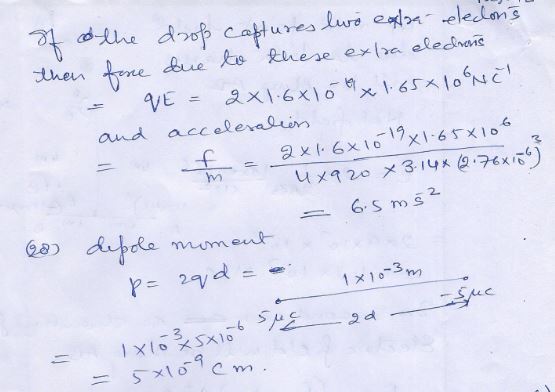 If the drop captures two extra electrons
then force due to these extra electrons
= qE = 2×1.6×10⁻¹⁹ × 1.65×10⁶ N C⁻¹
and acceleration
= f/m = 2×1.6×10⁻¹⁹×1.65×10⁶ / 4×920×3.14×(2.76×10⁻⁶)³
= 6.5 m s⁻²
(28) dipole moment
p = 2qd =
1×10⁻³ m
5μc 2d -5μc
= 1×10⁻³×5×10⁻⁶
= 5×10⁻⁹ c m.